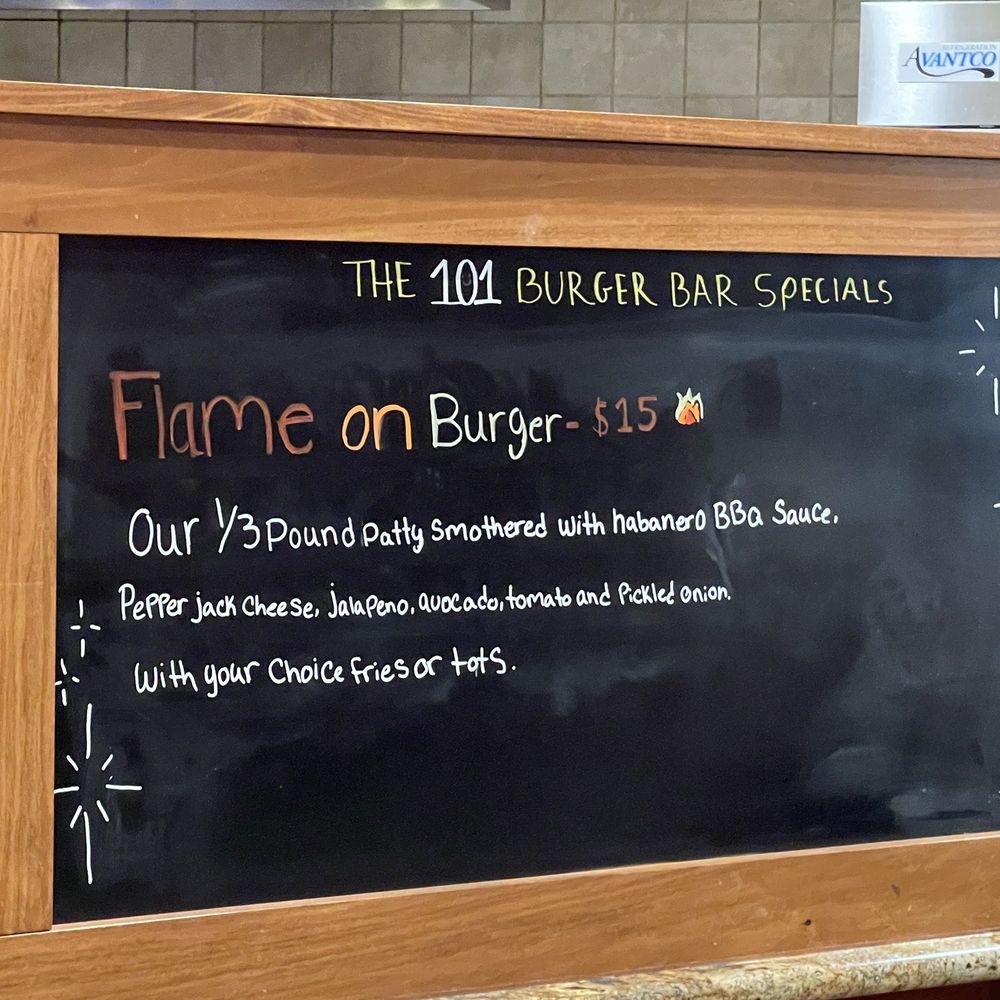 REFRIGERATION
AVANTCO
THE 101 BURGER BAR SPECIALS
Flame on Burger - $15
Our 1/3 Pound Patty Smothered with habanero BBQ Sauce,
Pepper jack Cheese, Jalapeno, avocado, tomato and Pickled onion.
With your Choice fries or tots.